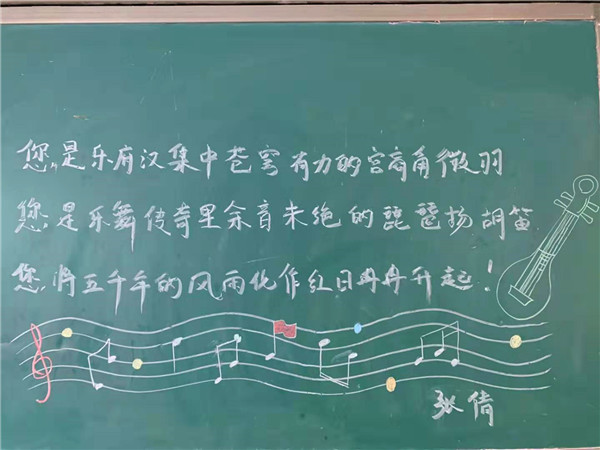 您,是乐府汉集中苍穹有力的宫商角徵羽
您是乐舞传奇里余音未绝的琵琶扬胡笛
您,将五千年的风雨化作红日冉冉升起!
张倩